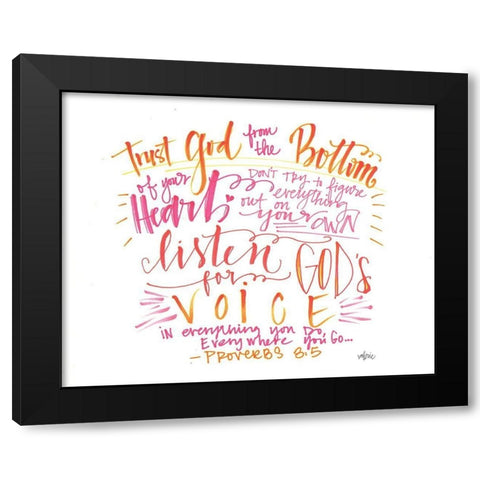 Trust God from the Bottom
of your Heart
DON'T TRY to figure
out everything on
your OWN
listen
for GOD'S
VOICE
in everything you DO,
Everywhere you Go...
—PROVERBS 8:5
valerie